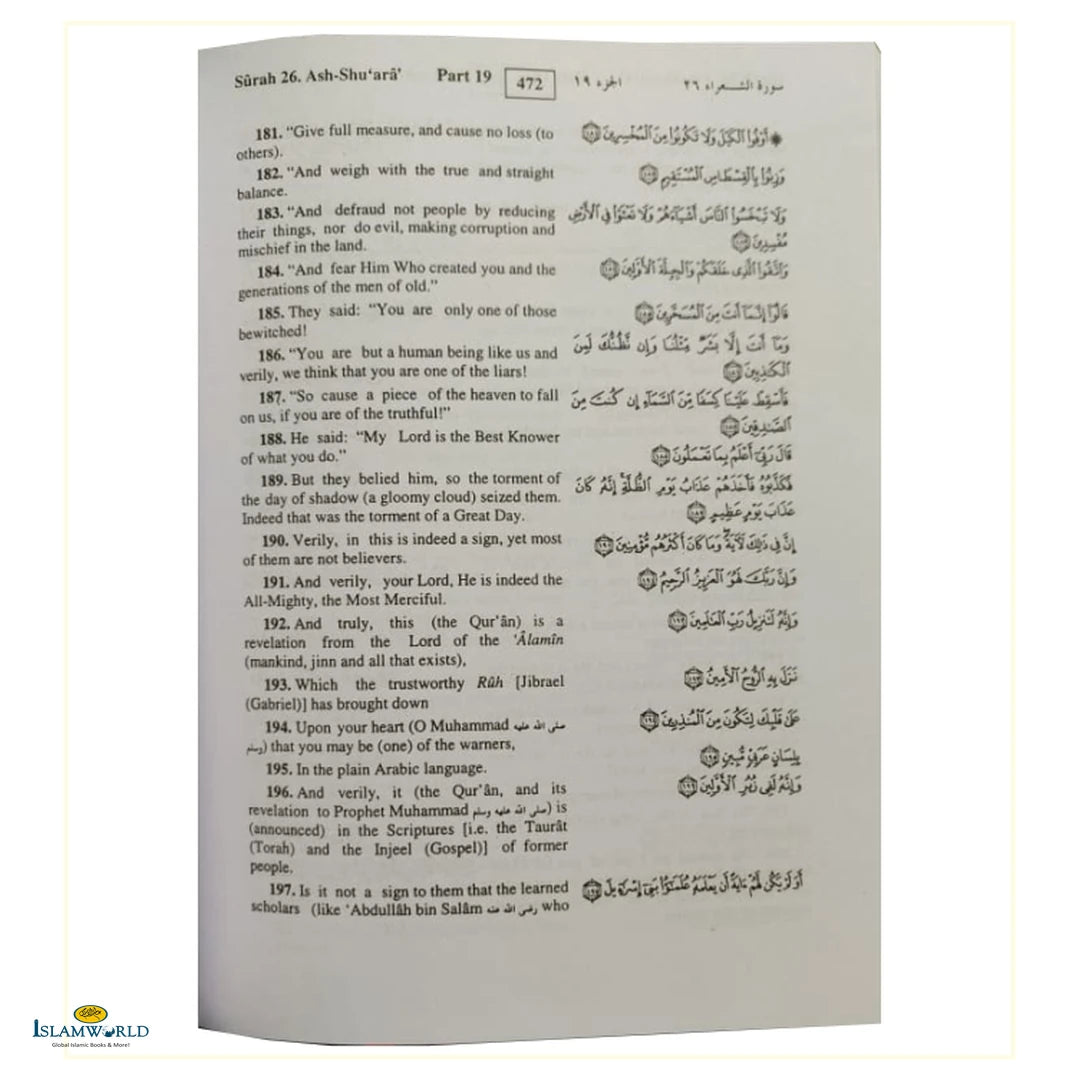 Sûrah 26. Ash-Shu‘arâ’ Part 19 472 الجزء ١٩ سورة الشعراء ٢٦
181. “Give full measure, and cause no loss (to
others).
182. “And weigh with the true and straight
balance.
183. “And defraud not people by reducing
their things, nor do evil, making corruption and
mischief in the land.
184. “And fear Him Who created you and the
generations of the men of old.”
185. They said: “You are only one of those
bewitched!
186. “You are but a human being like us and
verily, we think that you are one of the liars!
187. “So cause a piece of the heaven to fall
on us, if you are of the truthful!”
188. He said: “My Lord is the Best Knower
of what you do.”
189. But they belied him, so the torment of
the day of shadow (a gloomy cloud) seized them.
Indeed that was the torment of a Great Day.
190. Verily, in this is indeed a sign, yet most
of them are not believers.
191. And verily, your Lord, He is indeed the
All-Mighty, the Most Merciful.
192. And truly, this (the Qur’ân) is a
revelation from the Lord of the ‘Âlamîn
(mankind, jinn and all that exists),
193. Which the trustworthy Rûh [Jibrael
(Gabriel)] has brought down
194. Upon your heart (O Muhammad صلى الله عليه
وسلم) that you may be (one) of the warners,
195. In the plain Arabic language.
196. And verily, it (the Qur’ân, and its
revelation to Prophet Muhammad صلى الله عليه وسلم) is
(announced) in the Scriptures [i.e. the Taurât
(Torah) and the Injeel (Gospel)] of former
people.
197. Is it not a sign to them that the learned
scholars (like ‘Abdullâh bin Salâm رضى الله عنه who
۞ أَوْفُوا۟ ٱلْكَيْلَ وَلَا تَكُونُوا۟ مِنَ ٱلْمُخْسِرِينَ ١٨١
وَزِنُوا۟ بِٱلْقِسْطَاسِ ٱلْمُسْتَقِيمِ ١٨٢
وَلَا تَبْخَسُوا۟ ٱلنَّاسَ أَشْيَآءَهُمْ وَلَا تَعْثَوْا۟ فِى ٱلْأَرْضِ
مُفْسِدِينَ ١٨٣
وَٱتَّقُوا۟ ٱلَّذِى خَلَقَكُمْ وَٱلْجِبِلَّةَ ٱلْأَوَّلِينَ ١٨٤
قَالُوٓا۟ إِنَّمَآ أَنتَ مِنَ ٱلْمُسَحَّرِينَ ١٨٥
وَمَآ أَنتَ إِلَّا بَشَرٌ مِّثْلُنَا وَإِن نَّظُنُّكَ لَمِنَ
ٱلْكَـٰذِبِينَ ١٨٦
فَأَسْقِطْ عَلَيْنَا كِسَفًا مِّنَ ٱلسَّمَآءِ إِن كُنتَ مِنَ
ٱلصَّـٰدِقِينَ ١٨٧
قَالَ رَبِّىٓ أَعْلَمُ بِمَا تَعْمَلُونَ ١٨٨
فَكَذَّبُوهُ فَأَخَذَهُمْ عَذَابُ يَوْمِ ٱلظُّلَّةِ ۚ إِنَّهُۥ كَانَ
عَذَابَ يَوْمٍ عَظِيمٍ ١٨٩
إِنَّ فِى ذَٰلِكَ لَـَٔايَةً ۖ وَمَا كَانَ أَكْثَرُهُم مُّؤْمِنِينَ ١٩٠
وَإِنَّ رَبَّكَ لَهُوَ ٱلْعَزِيزُ ٱلرَّحِيمُ ١٩١
وَإِنَّهُۥ لَتَنزِيلُ رَبِّ ٱلْعَـٰلَمِينَ ١٩٢
نَزَلَ بِهِ ٱلرُّوحُ ٱلْأَمِينُ ١٩٣
عَلَىٰ قَلْبِكَ لِتَكُونَ مِنَ ٱلْمُنذِرِينَ ١٩٤
بِلِسَانٍ عَرَبِىٍّ مُّبِينٍ ١٩٥
وَإِنَّهُۥ لَفِى زُبُرِ ٱلْأَوَّلِينَ ١٩٦
أَوَلَمْ يَكُن لَّهُمْ ءَايَةً أَن يَعْلَمَهُۥ عُلَمَـٰٓؤُا۟ بَنِىٓ إِسْرَٰٓءِيلَ ١٩٧
ISLAMWORLD
Global Islamic Books & More!